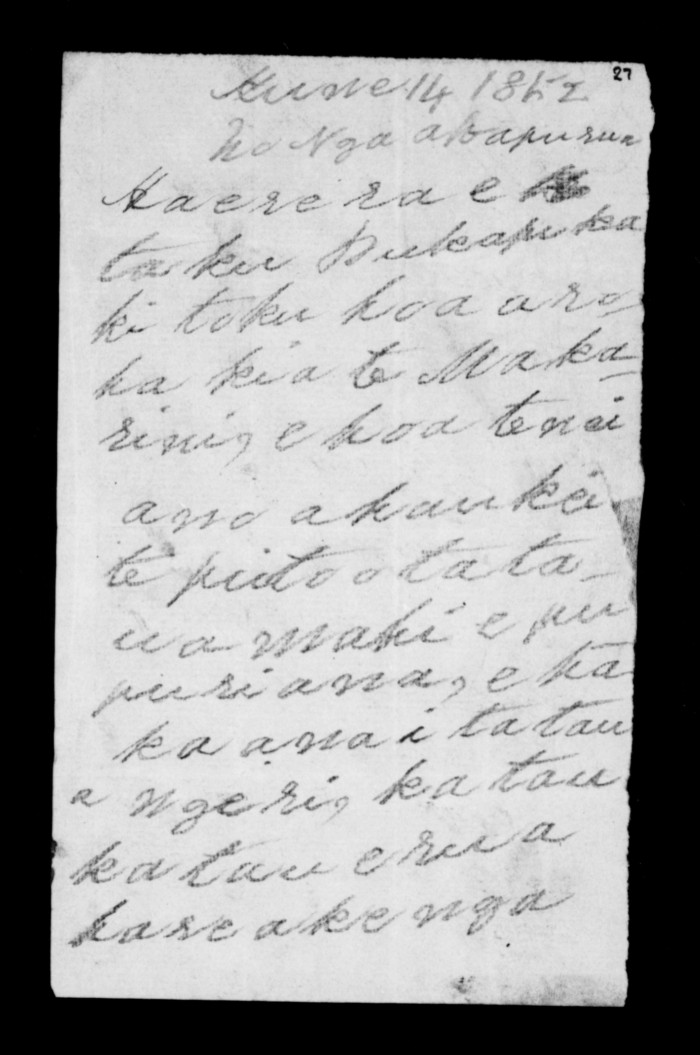 27
Hune 14 1862
No Nga akapurua
Haere ra e
taku Pukapuka
ki toku hoa aro-
ha kia te Maka-
rini, e hoa tenei
ano ahau kei
te pito o ta ta-
ua mahi e pu
puri ana, e ha
ka ana i ta tau
a ngeri, ka tau
ka tau erua
hare ake nga